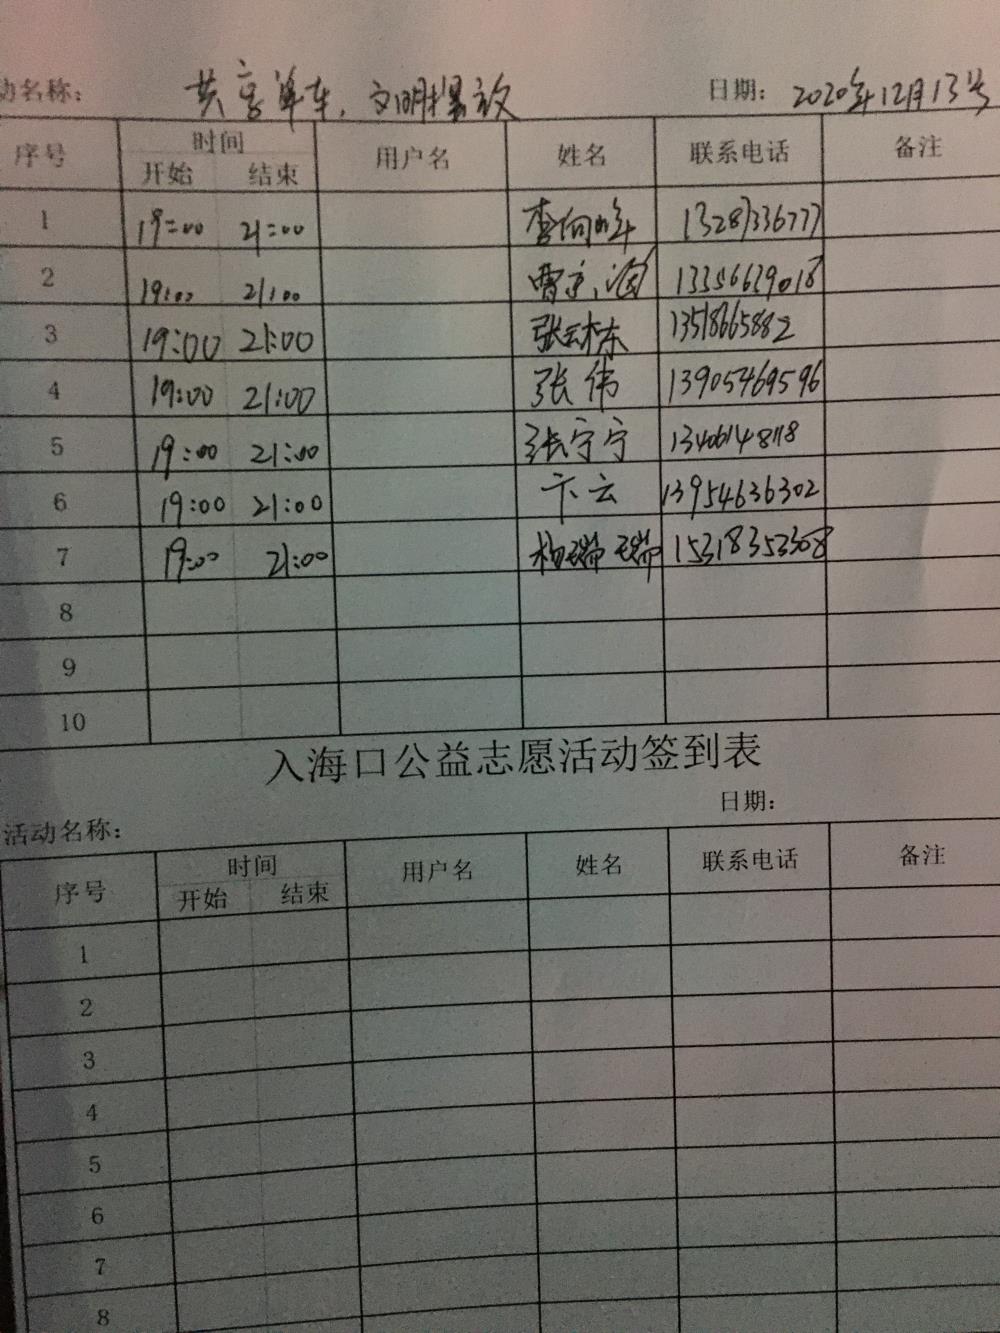 动名称： 共享单车，文明摆放 日期： 2020年12月13号
序号 时间 用户名 姓名 联系电话 备注
开始 结束
1 19:00 21:00 李向 13287336777
2 19:00 21:00 曹 13356639018
3 19:00 21:00 张云栋 13518665882
4 19:00 21:00 张伟 13905469596
5 19:00 21:00 张宁宁
6 19:00 21:00 卞云 13954636302
7 19:00 21:00 杨瑞瑞 15318353308
8
9
10
入海口公益志愿活动签到表
活动名称： 日期：
序号 时间 用户名 姓名 联系电话 备注
开始 结束
1
2
3
4
5
6
7
8